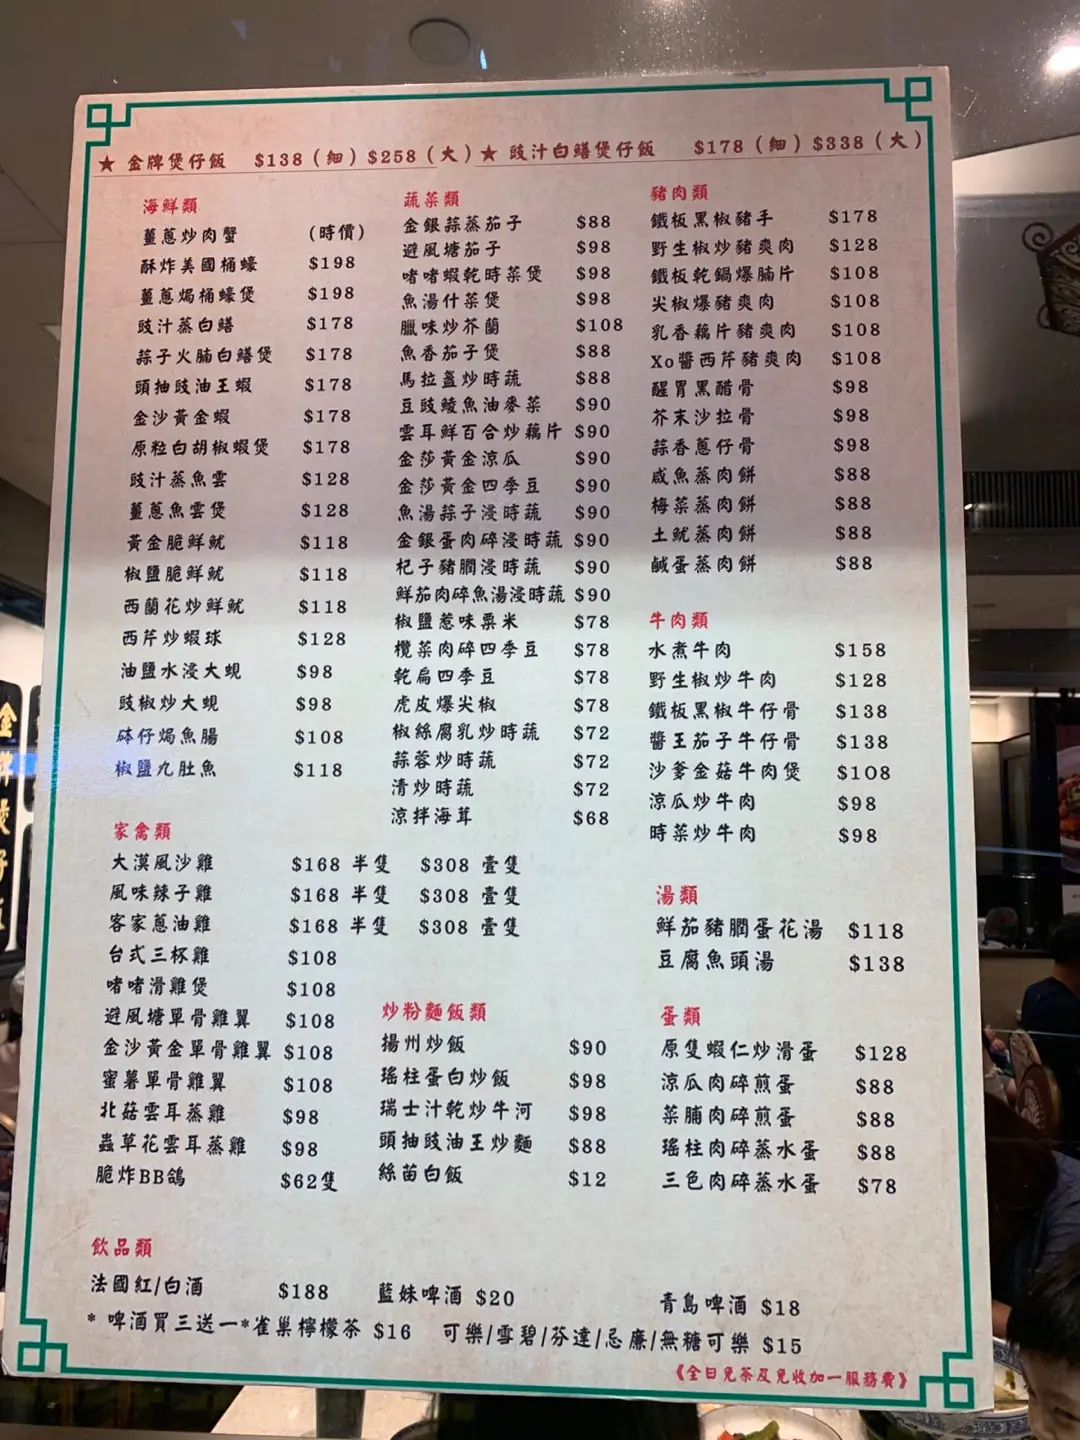 ★ 金牌煲仔飯 $138（細）$258（大）★ 豉汁白鱔煲仔飯 $178（細）$338（大）
海鮮類
薑蔥炒肉蟹 (時價)
酥炸美國桶蠔 $198
薑蔥焗桶蠔煲 $198
豉汁蒸白鱔 $178
蒜子火腩白鱔煲 $178
頭抽豉油王蝦 $178
金沙黃金蝦 $178
原粒白胡椒蝦煲 $178
豉汁蒸魚雲 $128
薑蔥魚雲煲 $128
黃金脆鮮魷 $118
椒鹽脆鮮魷 $118
西蘭花炒鮮魷 $118
西芹炒蝦球 $128
油鹽水浸大蜆 $98
豉椒炒大蜆 $98
砵仔焗魚腸 $108
椒鹽九肚魚 $118
家禽類
大漠風沙雞 $168 半隻 $308 壹隻
風味辣子雞 $168 半隻 $308 壹隻
客家蔥油雞 $168 半隻 $308 壹隻
台式三杯雞 $108
啫啫滑雞煲 $108
避風塘單骨雞翼 $108
金沙黃金單骨雞翼 $108
蜜薯單骨雞翼 $108
北菇雲耳蒸雞 $98
蟲草花雲耳蒸雞 $98
脆炸BB鴿 $62隻
蔬菜類
金銀蒜蒸茄子 $88
避風塘茄子 $98
啫啫蝦乾時菜煲 $98
魚湯什菜煲 $98
臘味炒芥蘭 $108
魚香茄子煲 $88
馬拉盞炒時蔬 $88
豆豉鯪魚油麥菜 $90
雲耳鮮百合炒藕片 $90
金莎黃金涼瓜 $90
金莎黃金四季豆 $90
魚湯蒜子浸時蔬 $90
金銀蛋肉碎浸時蔬 $90
杞子豬膶浸時蔬 $90
鮮茄肉碎魚湯浸時蔬 $90
椒鹽惹味粟米 $78
欖菜肉碎四季豆 $78
乾扁四季豆 $78
虎皮爆尖椒 $78
椒絲腐乳炒時蔬 $72
蒜蓉炒時蔬 $72
清炒時蔬 $72
涼拌海茸 $68
炒粉麵飯類
揚州炒飯 $90
瑤柱蛋白炒飯 $98
瑞士汁乾炒牛河 $98
頭抽豉油王炒麵 $88
絲苗白飯 $12
豬肉類
鐵板黑椒豬手 $178
野生椒炒豬爽肉 $128
鐵板乾鍋爆腩片 $108
尖椒爆豬爽肉 $108
乳香藕片豬爽肉 $108
Xo醬西芹豬爽肉 $108
醒胃黑醋骨 $98
芥末沙拉骨 $98
蒜香蔥仔骨 $98
咸魚蒸肉餅 $88
梅菜蒸肉餅 $88
土魷蒸肉餅 $88
鹹蛋蒸肉餅 $88
牛肉類
水煮牛肉 $158
野生椒炒牛肉 $128
鐵板黑椒牛仔骨 $138
醬王茄子牛仔骨 $138
沙爹金菇牛肉煲 $108
涼瓜炒牛肉 $98
時菜炒牛肉 $98
湯類
鮮茄豬膶蛋花湯 $118
豆腐魚頭湯 $138
蛋類
原隻蝦仁炒滑蛋 $128
涼瓜肉碎煎蛋 $88
菜脯肉碎煎蛋 $88
瑤柱肉碎蒸水蛋 $88
三色肉碎蒸水蛋 $78
飲品類
法國紅/白酒 $188 藍妹啤酒 $20 青島啤酒 $18
* 啤酒買三送一*雀巢檸檬茶 $16 可樂/雪碧/芬達/忌廉/無糖可樂 $15
《全日免茶及免收加一服務費》